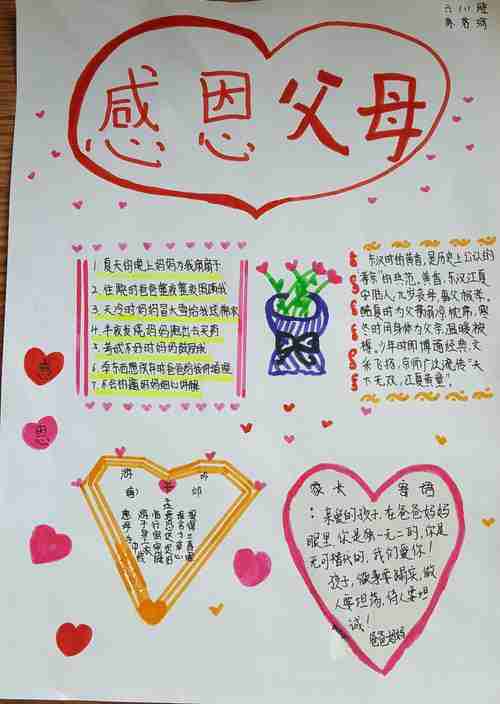 六(1)班
感恩父母
1. 夏天的晚上妈妈为我扇扇子
2.
3. 天冷时妈妈冒大雪给我送
4. 半夜发烧妈妈
5. 考试不好时妈妈鼓励我
6.
7. 不会的题妈妈细心讲解
东汉时的黄香,是历史上公认的
"孝亲"的典范。黄香,东汉江夏
中国人,九岁丧母,事父极孝。
酷夏时为父亲扇凉枕席,寒
冬时用身体为父亲温暖被
褥。少年时即博通经典,文
采飞扬,京师广泛流传"天
下无双,江夏黄童"。
恩
游子吟
慈母手中线
游子身上衣
临行密密缝
意恐迟迟归
谁言寸草心
报得三春晖
家长寄语
:亲爱的孩子,在爸爸妈妈
眼里,你是独一无二的,你是
无可替代的,我们爱你!
孩子,做事要踏实,做
人要坦荡,待人要坦
诚!
爸爸妈妈